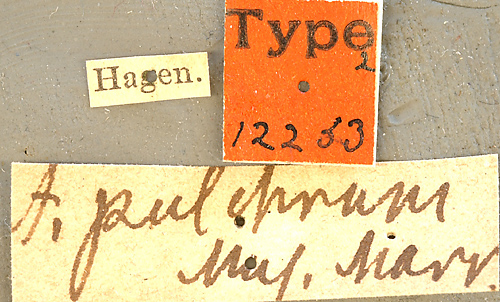 Hagen.
Type
1
12233
A. pulchrum
Mus.